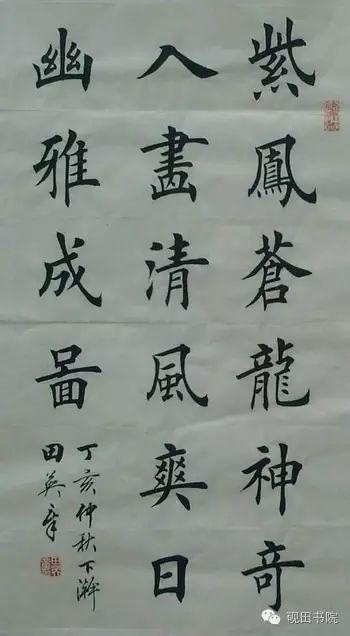 紫鳳蒼龍神奇
入畫清風爽日
幽雅成啚
丁亥仲秋下澣
田英章
砚田书院